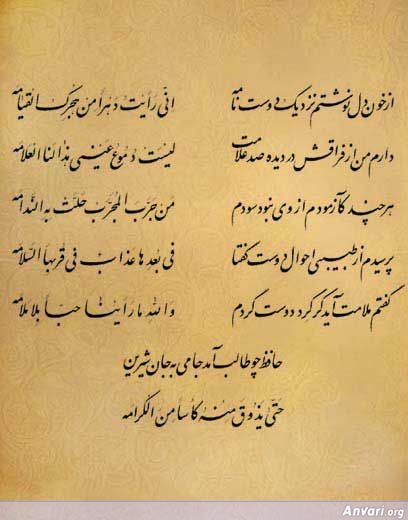 از خون دل نوشتم نزدیک دوست نامه انی رأیت دهراً من هجرک القیامه
دارم من از فراقش در دیده صد علامت لیست دموع عینی هذا لنا العلامه
هر چند کآزمودم از وی نبود سودم من جرب المجرب حلت به الندامه
پرسیدم از طبیبی احوال دوست گفتا فی بعدها عذاب فی قربها السلامه
گفتم ملامت آید گر گرد دوست گردم والله ما رأینا حباً بلا ملامه
حافظ چو طالب آمد جامی به جان شیرین
حتی یذوق منه کأساً من الکرامه
Anvari.org